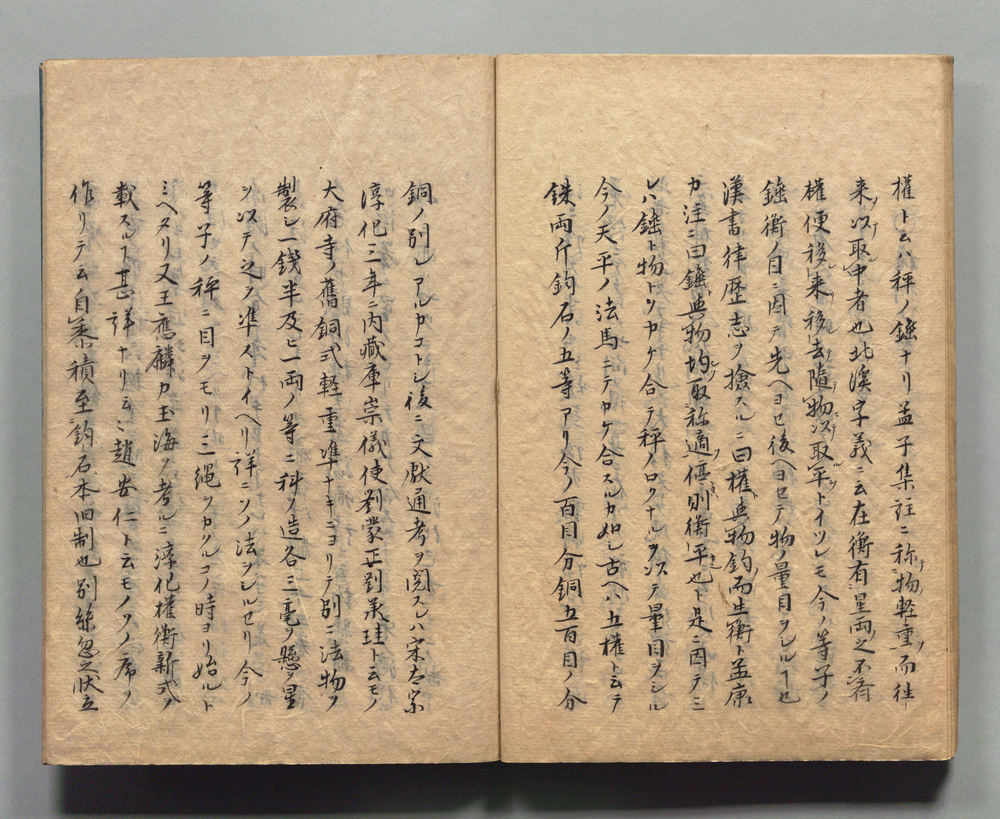 權ト云ハ秤ノ錘ナリ孟子集註ニ称物軽重而往
来以取中者也北溪字義ニ云在衡有星両之不斉
權便移来移去隨物以取平トイツレモ今ノ等子ノ
錘衡ノ目ニ因テ先ヘヨセ後ヘヨセテ物ノ量目ヲシルヿ也
漢書律歴志ヲ撿スルニ曰權與物鈞而生衡ト孟康
カ注ニ曰錘與物均取称適偃則衡平也ト是ニ因テミ
レハ錘ト物トヲカケ合テ秤ノロクナルヲ以テ量目ヲシル
今ノ天平ノ法馬ニテカケ合スルカ如シ古ヘハ五權ト云テ
銖両斤鈞石ノ五等アリ今ノ百目分銅五百目ノ分
銅ノ別レアルカコトシ後ニ文献通考ヲ閲スルハ宋太宗
淳化三年内藏庫崇儀使劉蒙正劉承珪ト云モノ
大府寺ノ舊銅式軽重準ナキニヨリテ別ニ法物ヲ
製シ一錢半ニ及ヒ一両ノ等ニ科ヲ造各三毫ヲ懸ヲ星
ヲ以テ之ヲ準ストイヘリ詳ニソノ法ヲシルセリ今ノ
等子ノ秤ニ目ヲモリ三縄ヲカクルコノ時ヨリ始ルト
ミヘタリ又王應麟カ玉海ヲ考ルニ淳化權衡新式ヲ
載スルヿ甚詳ナリ云々趙安仁ト云モノソノ席ヲ
作リテ云自黍積至鈞石本旧制也別絲忽之状立